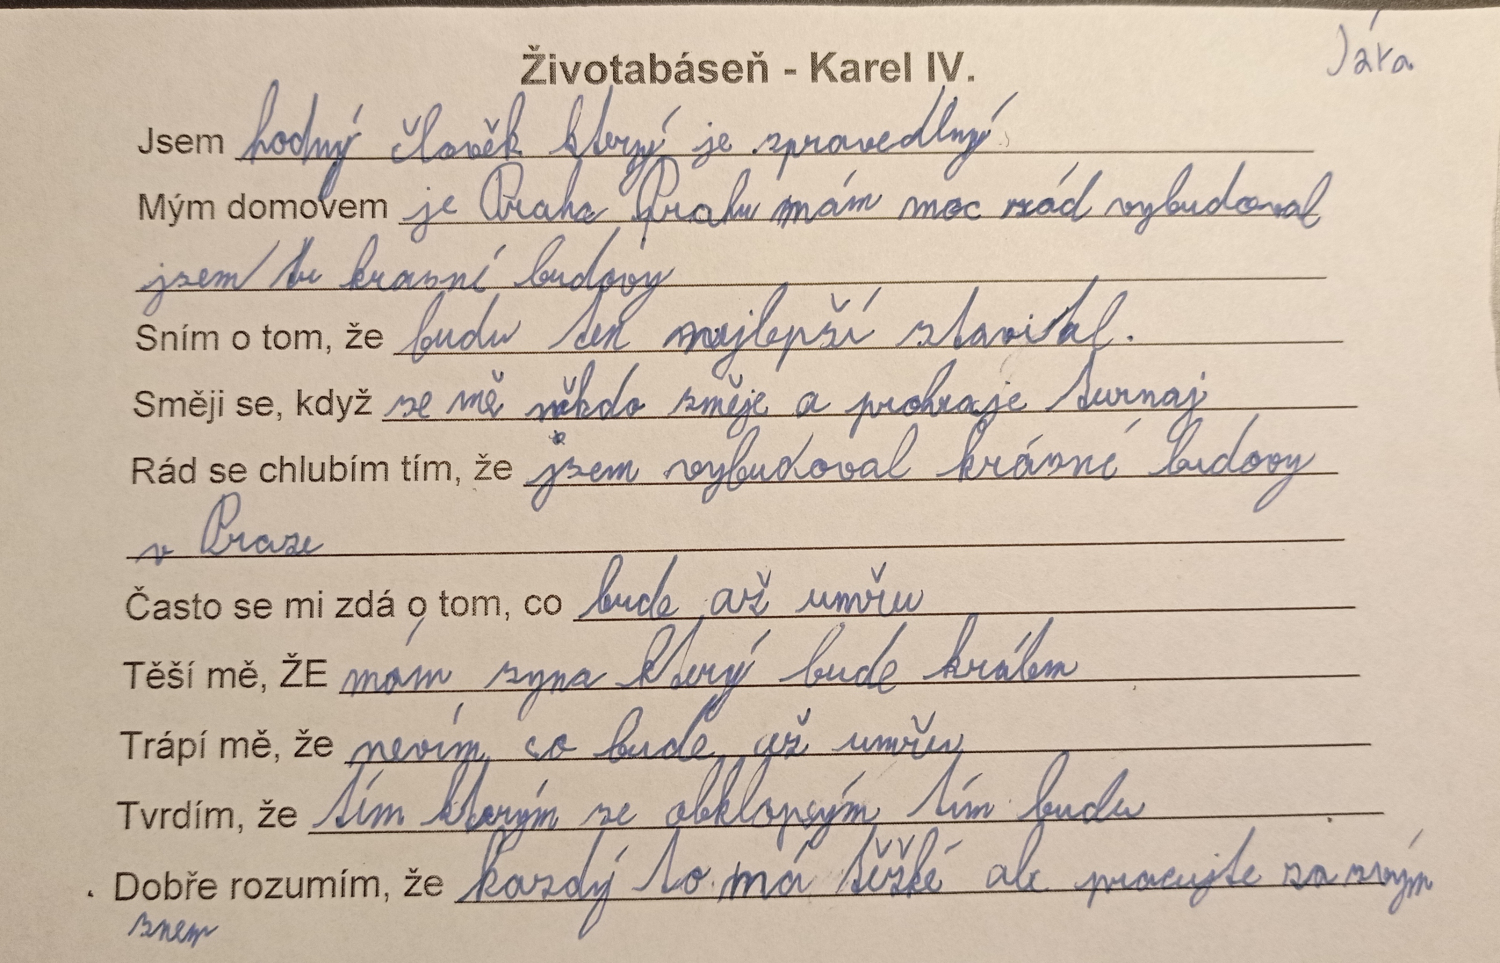 Životabáseň - Karel IV.
Jára
Jsem hodný člověk který je spravedlný
Mým domovem je Praha Prahu mám moc rád vybudoval
jsem tu krasní budovy
Sním o tom, že budu ten nejlepší stavital.
Směji se, když se mě někdo směje a prohraje turnaj
Rád se chlubím tím, že jsem vybudoval krásné budovy
v Praze
Často se mi zdá o tom, co bude až umřu
Těší mě, ŽE mám syna který bude králem
Trápí mě, že nevím co bude až umřu
Tvrdím, že tím kterým se obklopsým tím budu
Dobře rozumím, že kazdý to má těžké ale pracujte za svým
snem